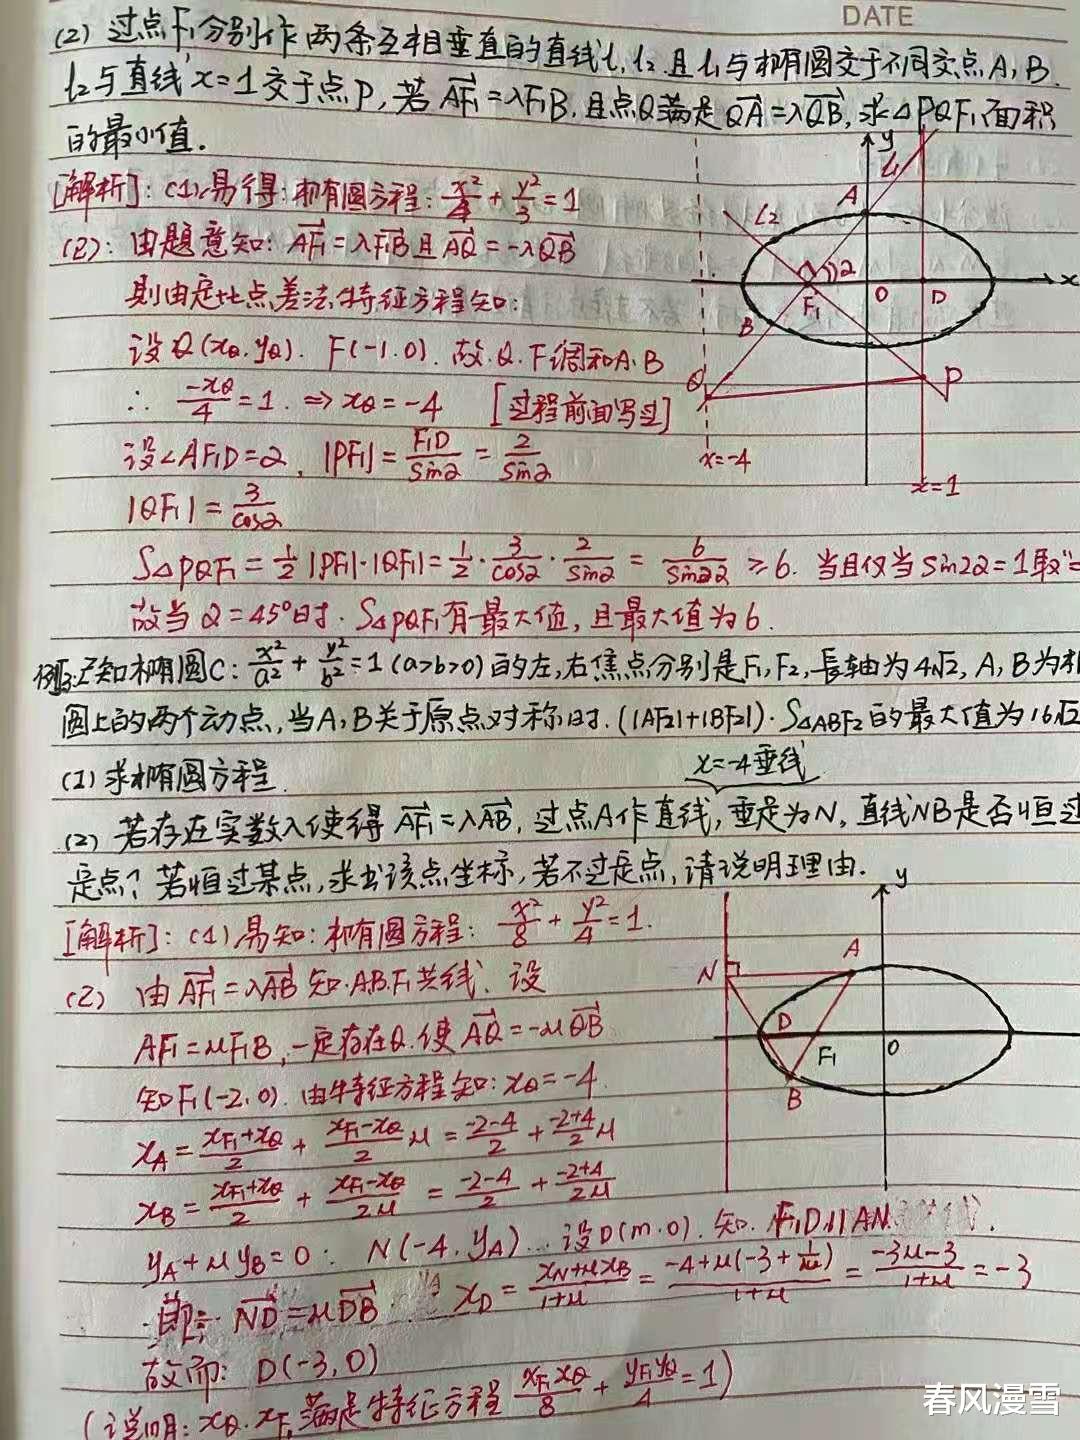 DATE
(2) 过点F₁分别作两条互相垂直的直线l₁ l₂ 且l₁与椭圆交于不同交点A, B.
l₂与直线x=1交于点P, 若 AF₁=λF₁B. 且点Q满足QA=λQB, 求△PQF₁面积
的最小值.
[解析]: (1)易得: 椭圆方程: x²/4 + y²/3 = 1
(2): 由题意知: AF₁=λF₁B且AQ=-λQB
则由定比点差法, 特征方程知:
设Q(xQ. yQ). F(-1.0). 故.Q.F调和A.B
∴ -xQ/4 = 1. ⇒ xQ = -4 [过程前面写过]
设∠AF₁D=2, |PF₁| = F₁D/sin2 = 2/sin2
|QF₁| = 3/cos2
S△PQF₁ = 1/2 |PF₁|·|QF₁| = 1/2 · 3/cos2 · 2/sin2 = 6/sin22 ≥ 6. 当且仅当sin22=1取"=
故当2=45°时. S△PQF₁有最大值, 且最大值为6.
y
A
l₁
l₂
2
x
F₁
O
D
B
Q
P
x=-4
x=1
例3:已知椭圆C: x²/a² + y²/b² = 1 (a>b>0) 的左,右焦点分别是F₁, F₂, 长轴为4√2, A, B为椭
圆上的两个动点, 当A, B关于原点对称时. (|AF₂|+|BF₂|)·S△ABF₂的最大值为16√2
(1) 求椭圆方程.
x=-4垂线
(2) 若存在实数λ使得 AF₁=λAB, 过点A作直线, 垂足为N, 直线NB是否恒过
定点? 若恒过某点, 求出该点坐标, 若不过定点, 请说明理由.
[解析]: (1)易知: 椭圆方程: x²/8 + y²/4 = 1.
(2) 由AF₁=λAB知.A.B.F₁共线. 设
AF₁=μF₁B, 一定存在Q.使AQ=-μQB
知F₁(-2.0). 由特征方程知: xQ=-4.
xA = (xF₁+xQ)/2 + (xF₁-xQ)/2 μ = (-2-4)/2 + (-2+4)/2 μ
xB = (xF₁+xQ)/2 + (xF₁-xQ)/2μ = (-2-4)/2 + (-2+4)/2μ
yA+μyB=0: N(-4, yA) 设D(m.0). 知. F₁D//AN
即: ND=μDB xD = (xN+μxB)/(1+μ) = (-4+μ(-3+1/μ))/(1+μ) = (-3μ-3)/(1+μ) = -3
故而: D(-3,0)
(说明: xQ. xF₁满足特征方程 xF₁xQ/8 + yF₁yQ/4 = 1)
y
N
A
D
F₁
O
B
春风漫雪